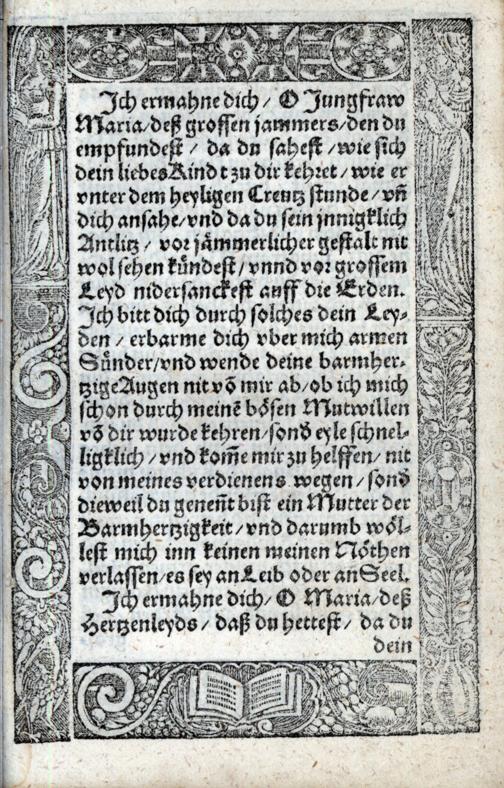 Ich ermahne dich / O Jungfraw
Maria / deß grossen jammers / den du
empfundest / da du sahest / wie sich
dein liebes Kind zu dir kehret / wie er
vnter dem heyligen Creutz stunde / vñ
dich ansahe / vnd da du sein jnnigklich
Antlitz / vor jämmerlicher gestalt nit
wol sehen kündest / vnnd vor grossem
Leyd nidersanckest auff die Erden.
Ich bitt dich durch solches dein Ley-
den / erbarme dich vber mich armen
Sünder / vnd wende deine barmher-
tzige Augen nit võ mir ab / ob ich mich
schon durch meinẽ bösen Mutwillen
võ dir wurde kehren / sonđ eyle schnel-
ligklich / vnd kom̃e mir zu helffen / nit
von meines verdienens wegen / sonđ
dieweil du genent bist ein Mutter der
Barmhertzigkeit / vnd darumb wöl-
lest mich inn keinen meinen Nöthen
verlassen / es sey an Leib oder an Seel.
Ich ermahne dich / O Maria / deß
Hertzenleyds / daß du hettest / da du
dein